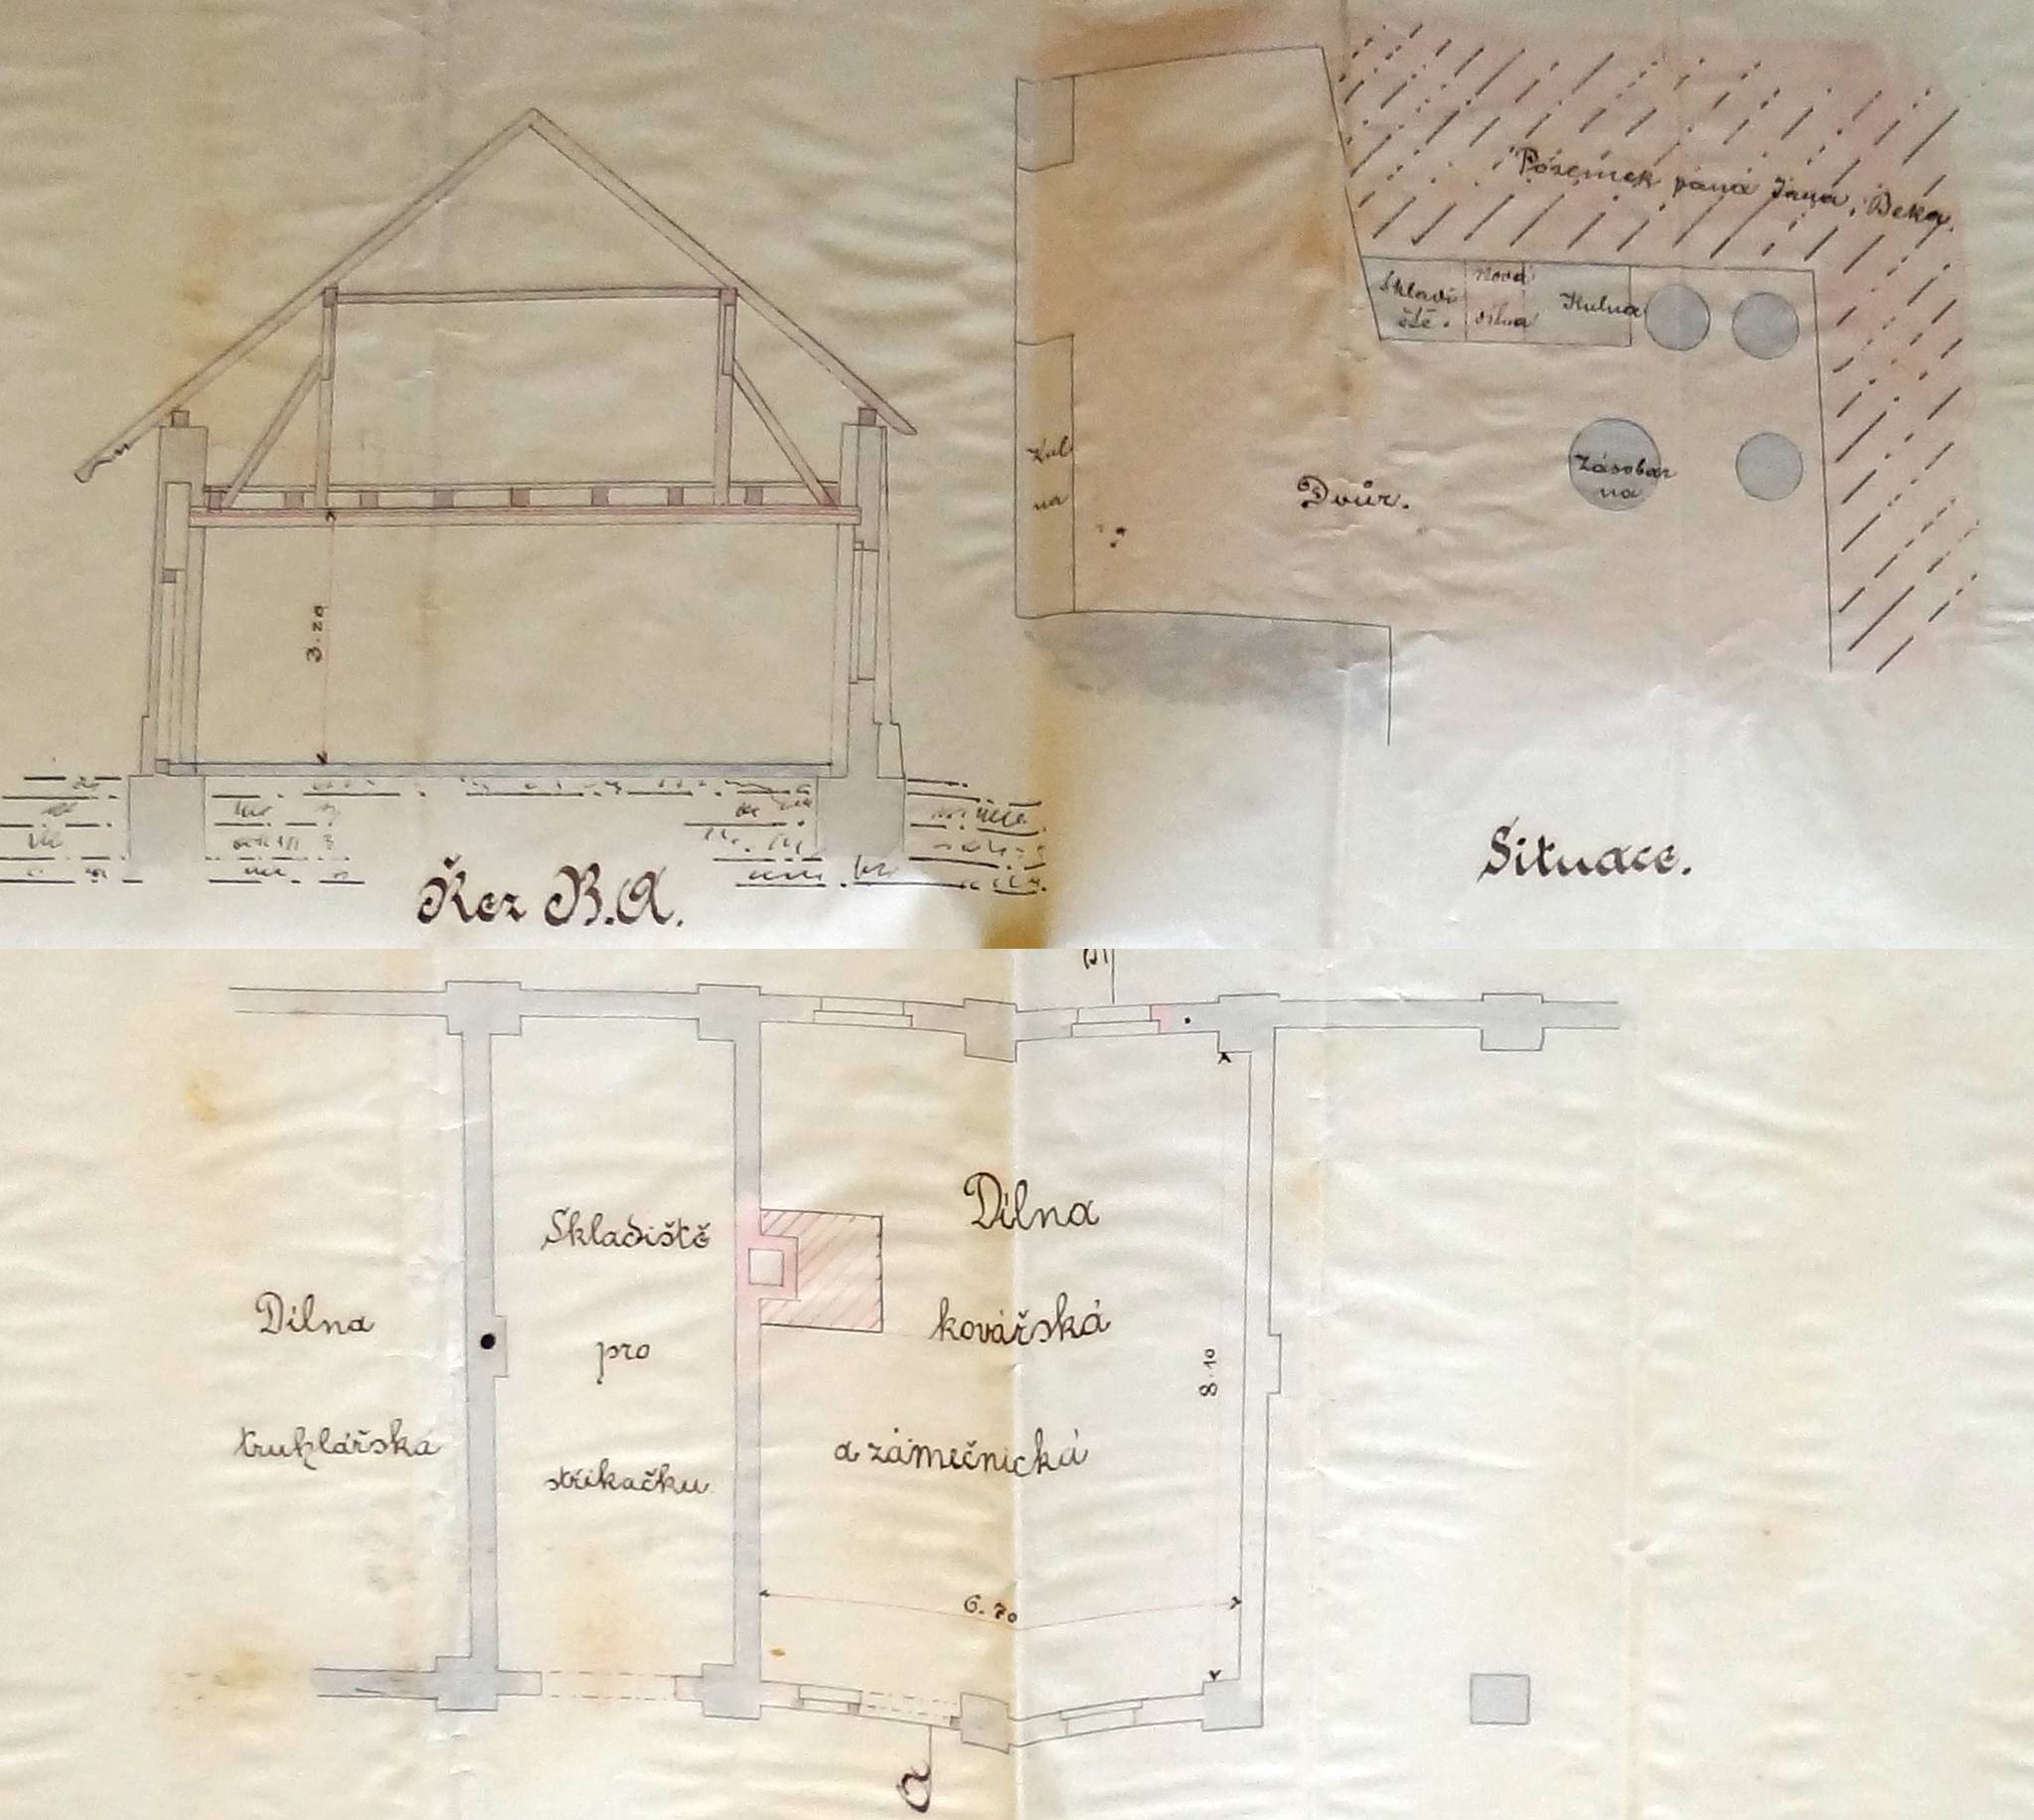 Pozemek pana Jana Beka.
Skladi
ště.
Nová
dílna
Kulna
Kul
na
Dvůr.
Zásobár
na
3.20
Řez B.A.
Situace.
B
Dílna
truhlářská
Skladiště
pro
stříkačku
Dílna
kovářská
a zámečnická
8.10
6.70
a